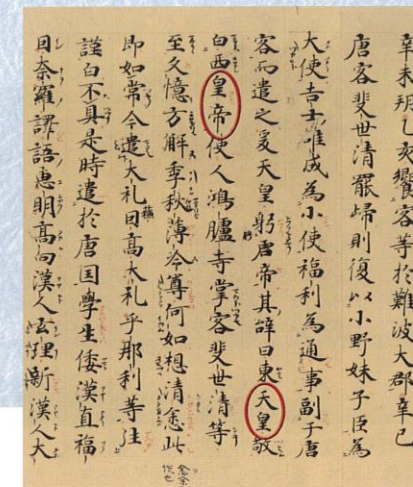 辛未朔乙亥饗客等於難波大郡辛巳
唐客裴世清罷歸則復以小野妹子臣為
大使吉士雄成為小使福利為通事副于唐
客而遣之爰天皇躬唐帝其辞曰東天皇敬
白西皇帝使人鴻臚寺掌客裴世清等
至久憶方解季秋薄冷尊何如想清悆此
即如常今遣大礼因高大礼乎那利等往
謹白不具是時遣於唐国學生倭漢直福
因奈羅譯語恵明高向漢人玄理新漢人大